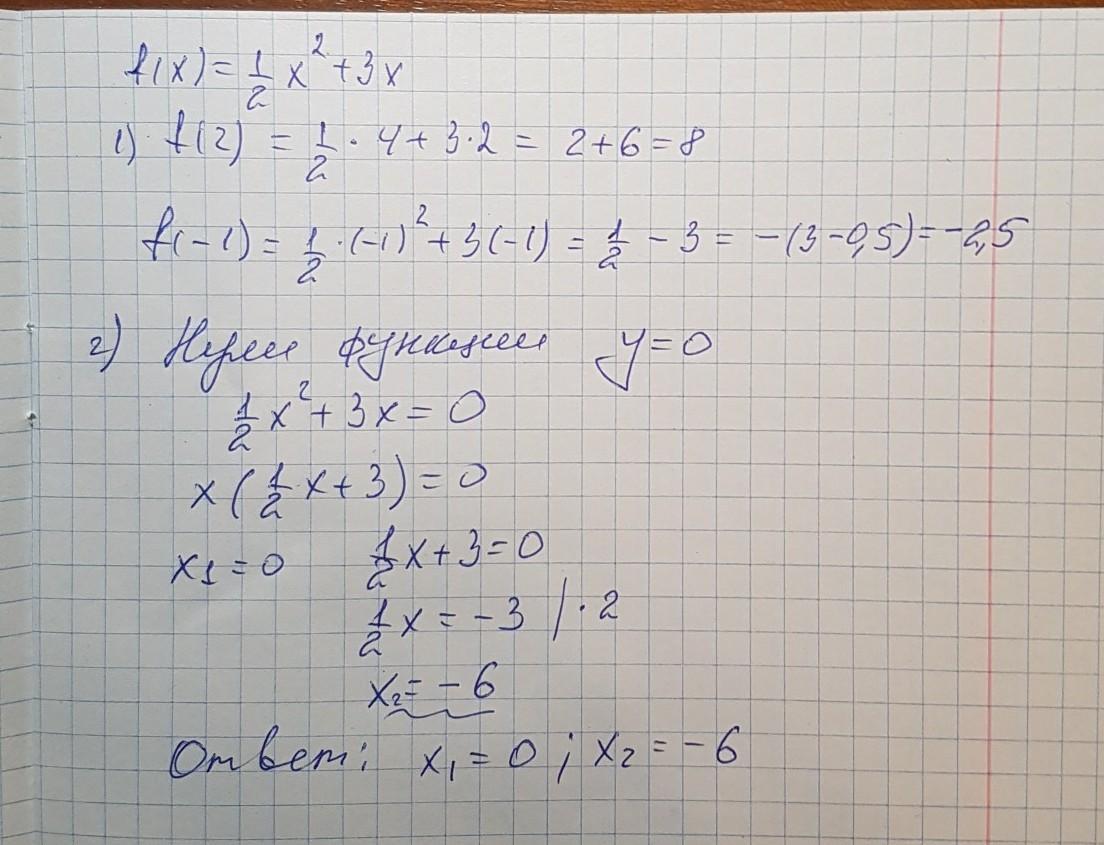 f(x) = 1/2 x² + 3x
1) f(2) = 1/2 · 4 + 3·2 = 2+6=8
f(-1) = 1/2 ·(-1)² + 3(-1) = 1/2 - 3 = -(3-0,5)=-2,5
2) Нули функции y=0
1/2 x² + 3x = 0
x(1/2 x + 3) = 0
x1 = 0 1/2 x + 3 = 0
1/2 x = -3 / · 2
x2 = -6
Ответ: x1 = 0 ; x2 = -6